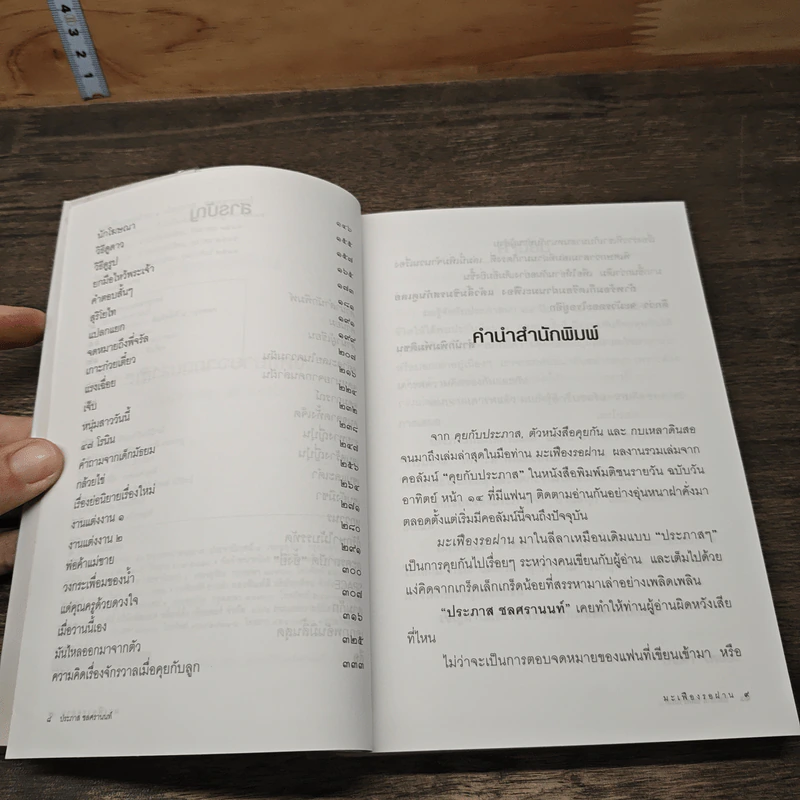 4
3
2
1
นักโฆษณา ๑๔๖
วิธีดูดาว ๑๕๕
วิธีดูรูป ๑๕๘
ยกมือไหว้พระเจ้า ๑๖๕
คำตอบสั้นๆ ๑๗๑
สุริโยไท ๑๘๑
แปลกแยก ๑๙๑
จดหมายถึงพี่จรัล ๑๙๙
เกาะก๋วยเตี๋ยว ๒๐๘
แรงเฉื่อย ๒๑๖
เจ๊ป ๒๒๔
หนุ่มสาววันนี้ ๒๓๒
๔๘ โรนิน ๒๓๘
คำถามจากเด็กมัธยม ๒๔๘
กล้วยไข่ ๒๕๖
เรื่องย่อนิยายเรื่องใหม่ ๒๖๔
งานแต่งงาน ๑ ๒๗๑
งานแต่งงาน ๒ ๒๘๐
พ่อค้าแม่ขาย ๒๙๑
วงกระเพื่อมของน้ำ ๓๐๐
แด่คุณครูด้วยดวงใจ ๓๐๗
เมื่อวานนี้เอง ๓๑๖
มันไหลออกมาจากตัว ๓๒๕
ความคิดเรื่องจักรวาลเมื่อคุยกับลูก ๓๓๓
๘ ประภาส ชลศรานนท์
คำนำสำนักพิมพ์
จาก คุยกับประภาส, ตัวหนังสือคุยกัน และ กบเหลาดินสอ
จนมาถึงเล่มล่าสุดในมือท่าน มะเฟืองรอฝาน ผลงานรวมเล่มจาก
คอลัมน์ “คุยกับประภาส” ในหนังสือพิมพ์มติชนรายวัน ฉบับวัน
อาทิตย์ หน้า ๑๔ ที่มีแฟนๆ ติดตามอ่านกันอย่างอุ่นหนาฝาคั่งมา
ตลอดตั้งแต่เริ่มมีคอลัมน์นี้จนถึงปัจจุบัน
มะเฟืองรอฝาน มาในลีลาเหมือนเดิมแบบ “ประภาสๆ”
เป็นการคุยกันไปเรื่อยๆ ระหว่างคนเขียนกับผู้อ่าน และเต็มไปด้วย
แง่คิดจากเกร็ดเล็กเกร็ดน้อยที่สรรหามาเล่าอย่างเพลิดเพลิน
“ประภาส ชลศรานนท์” เคยทำให้ท่านผู้อ่านผิดหวังเสีย
ที่ไหน
ไม่ว่าจะเป็นการตอบจดหมายของแฟนที่เขียนเข้ามา หรือ
มะเฟืองรอฝาน ๙